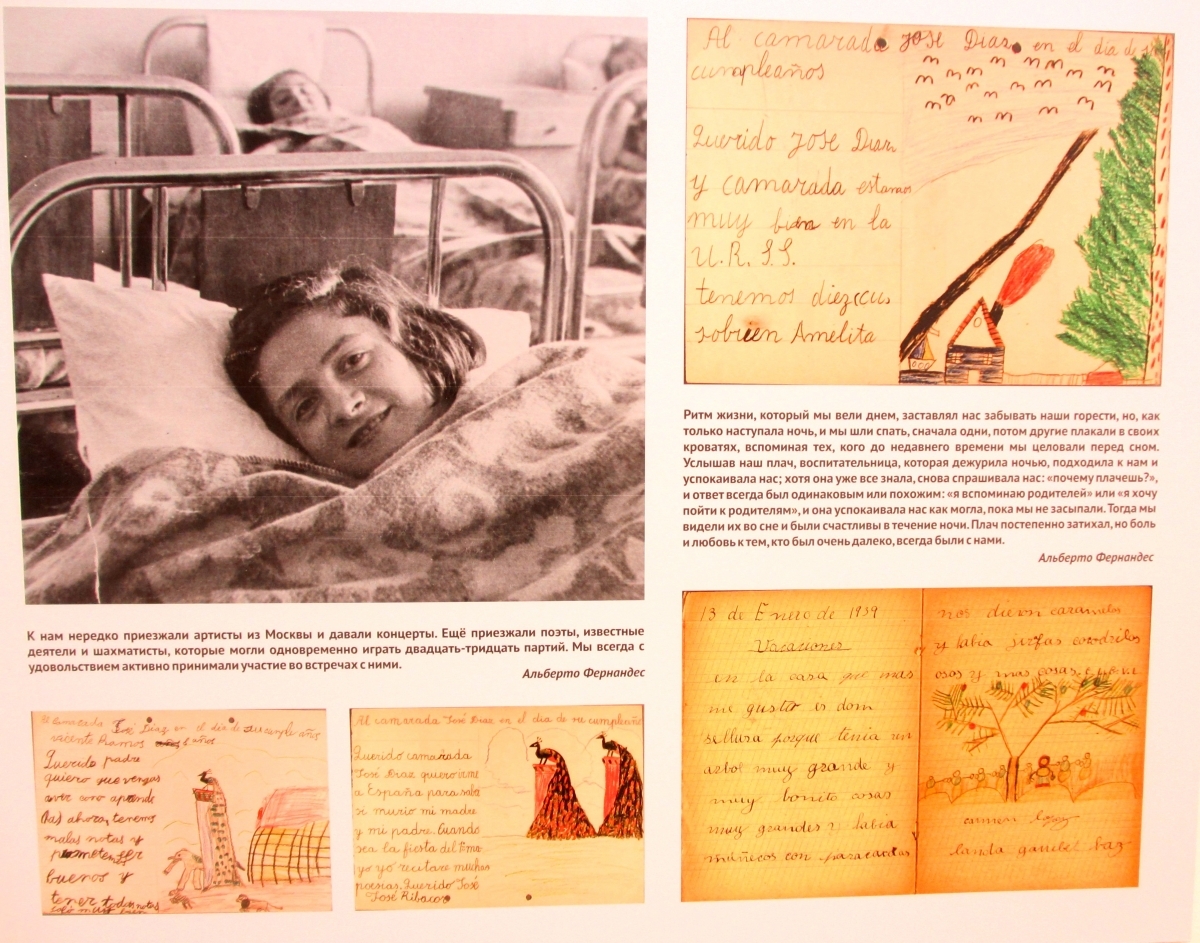 К нам нередко приезжали артисты из Москвы и давали концерты. Ещё приезжали поэты, известные
деятели и шахматисты, которые могли одновременно играть двадцать-тридцать партий. Мы всегда с
удовольствием активно принимали участие во встречах с ними.
Альберто Фернандес
Al camarada José Diaz en el dia de su cumple años
Vicente Ramos 8 años
Querido padre
quiero que vengas
aver como aprende
ahora, tenemos
malas notas y
buenos y
tener todas notas
muy bien
Al camarada José Diaz en el dia de su cumpleaño
Querido camarada
José Diaz quiero irme
a España para saber
si murio mi madre
y mi padre. Cuando
sea la fiesta del
yo yó recitare muchas
poesias. Querido José
José Ribacor
Al camarada José Diaz en el dia de su
cumpleaños
Querido José Diaz
y camarada estamos
muy bien en la
U.R.S.S.
tenemos diez
sobrien Amelita
Ритм жизни, который мы вели днем, заставлял нас забывать наши горести, но, как
только наступала ночь, и мы шли спать, сначала одни, потом другие плакали в своих
кроватях, вспоминая тех, кого до недавнего времени мы целовали перед сном.
Услышав наш плач, воспитательница, которая дежурила ночью, подходила к нам и
успокаивала нас; хотя она уже все знала, снова спрашивала нас: «почему плачешь?»,
и ответ всегда был одинаковым или похожим: «я вспоминаю родителей» или «я хочу
пойти к родителям», и она успокаивала нас как могла, пока мы не засыпали. Тогда мы
видели их во сне и были счастливы в течение ночи. Плач постепенно затихал, но боль
и любовь к тем, кто был очень далеко, всегда были с нами.
Альберто Фернандес
13 de Enero de 1939
Vacaciones
en la casa que mas
me gusto es dom
sellura porque tenia un
arbol muy grande y
muy bonito cosas
muy grandes y habia
muñecos con paracaidas
nos dieron caramelos
y habia jirfas cocodrilos
osos y mas cosas
carmen lopez
landa garribel baz